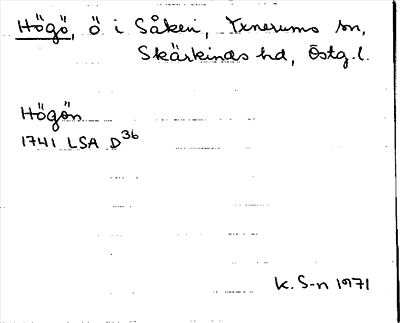 Högö, ö i Såken, Yxnerums sn,
Skärkinds hd, Östg. l.
Högön
1741 LSA D36
K. S-n 1971